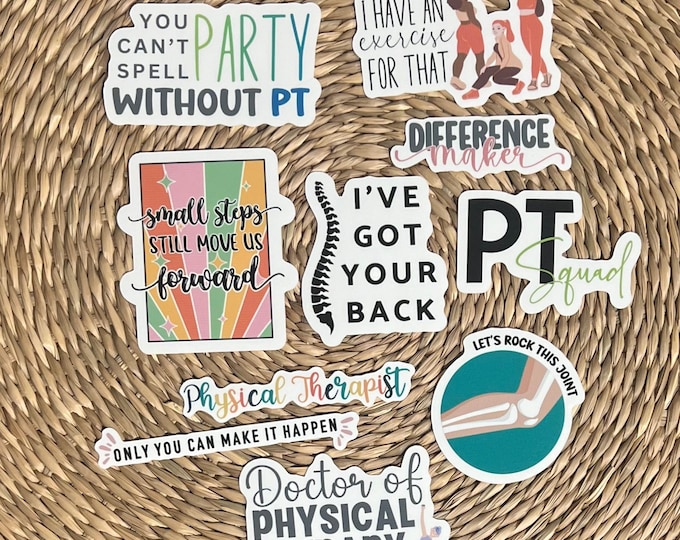 YOU
CAN'T
SPELL
PARTY
WITHOUT PT
I HAVE AN
exercise
FOR THAT
DIFFERENCE
maker
small steps
STILL MOVE US
forward
I'VE
GOT
YOUR
BACK
PT
Squad
LET'S ROCK THIS JOINT
Physical Therapist
ONLY YOU CAN MAKE IT HAPPEN
Doctor of
PHYSICAL